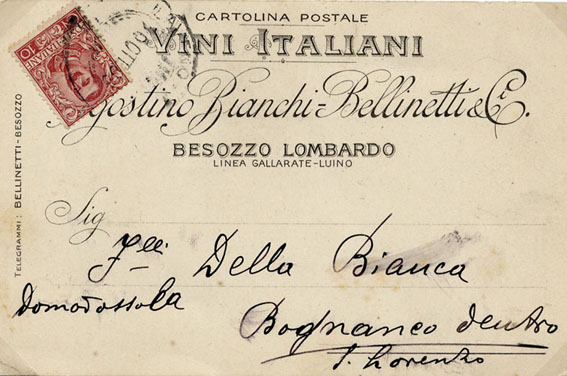 CARTOLINA POSTALE
VINI ITALIANI
Agostino Bianchi-Bellinetti & Ci.
BESOZZO LOMBARDO
LINEA GALLARATE-LUINO
TELEGRAMMI: BELLINETTI-BESOZZO
Sig
Flli Della Bianca
Domodossola
Bognanco dentro
S. Lorenzo